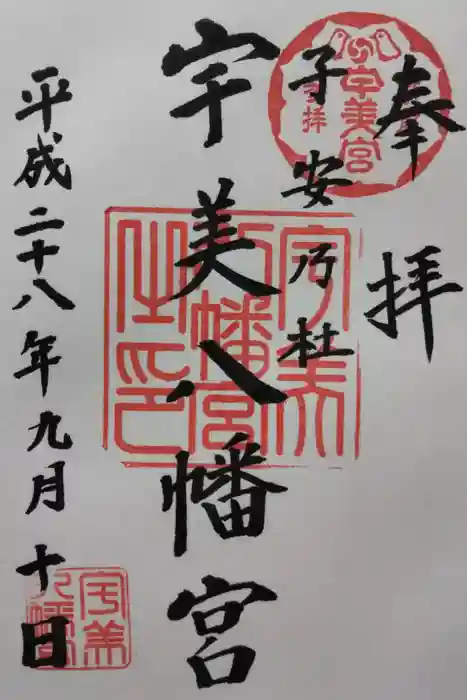 奉拝
子安乃杜
宇美八幡宮
平成二十八年九月十日
宇美宮
参拝
宇美八幡宮之印
宇美八幡宮